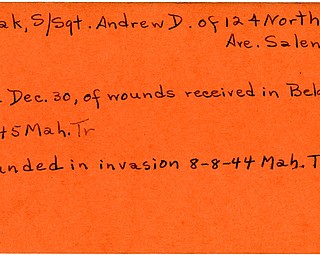 ak, S/Sgt. Andrew D. of 124 North
Ave. Salem
Dec. 30, of wounds received in Bel
45 Mah. Tr
unded in invasion 8-8-44 Mah. T